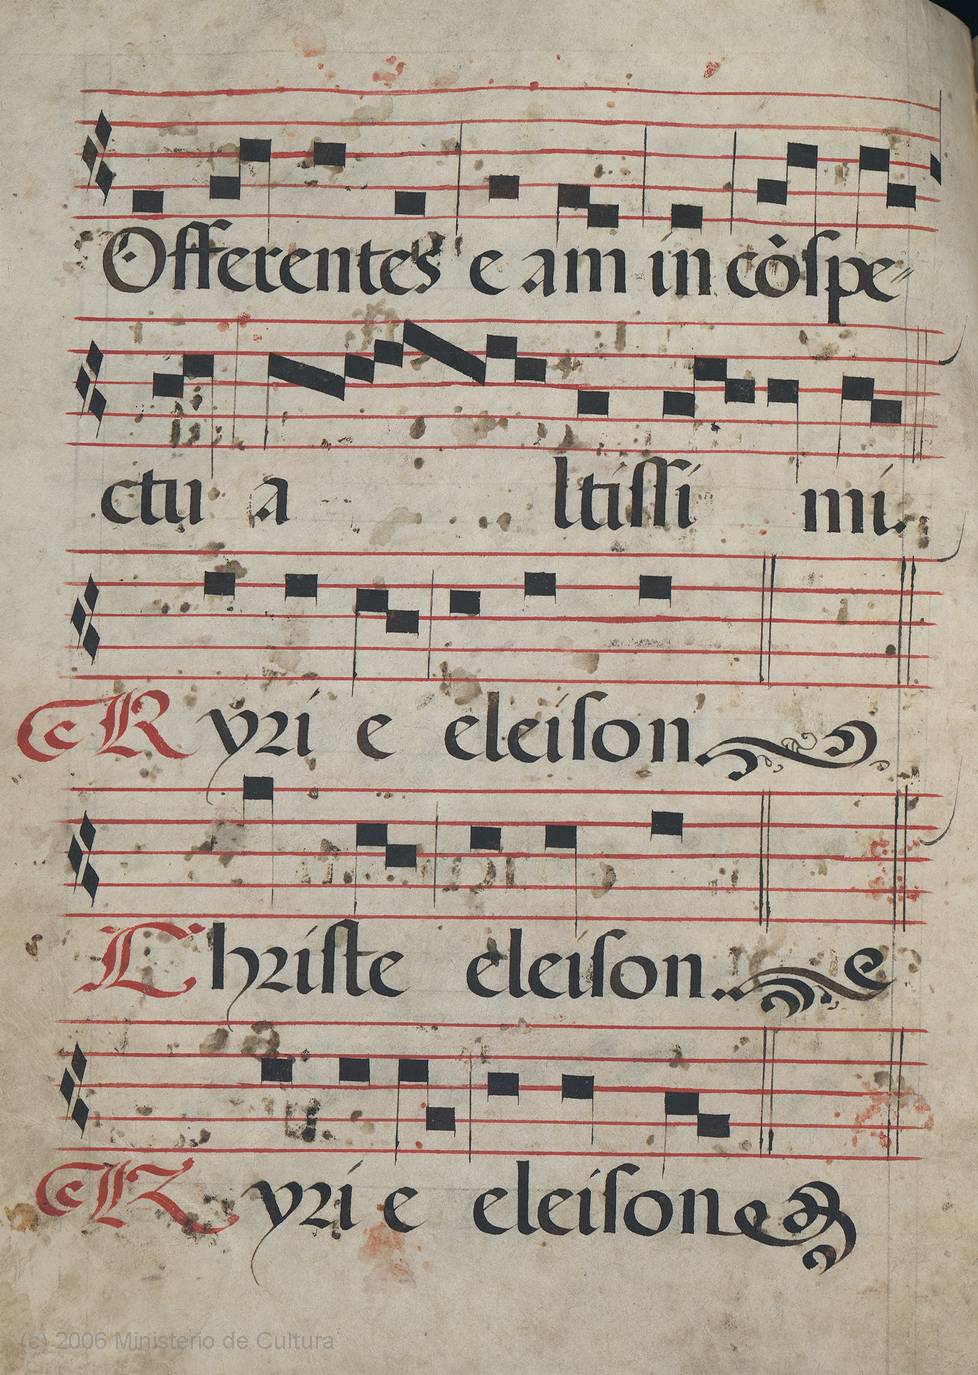 Offerentes e am in cõſpe-
ctu a ltiſſi mi.
Kyri e eleiſon.
Chriſte eleiſon.
Kyri e eleiſon
(c) 2006 Ministerio de Cultura